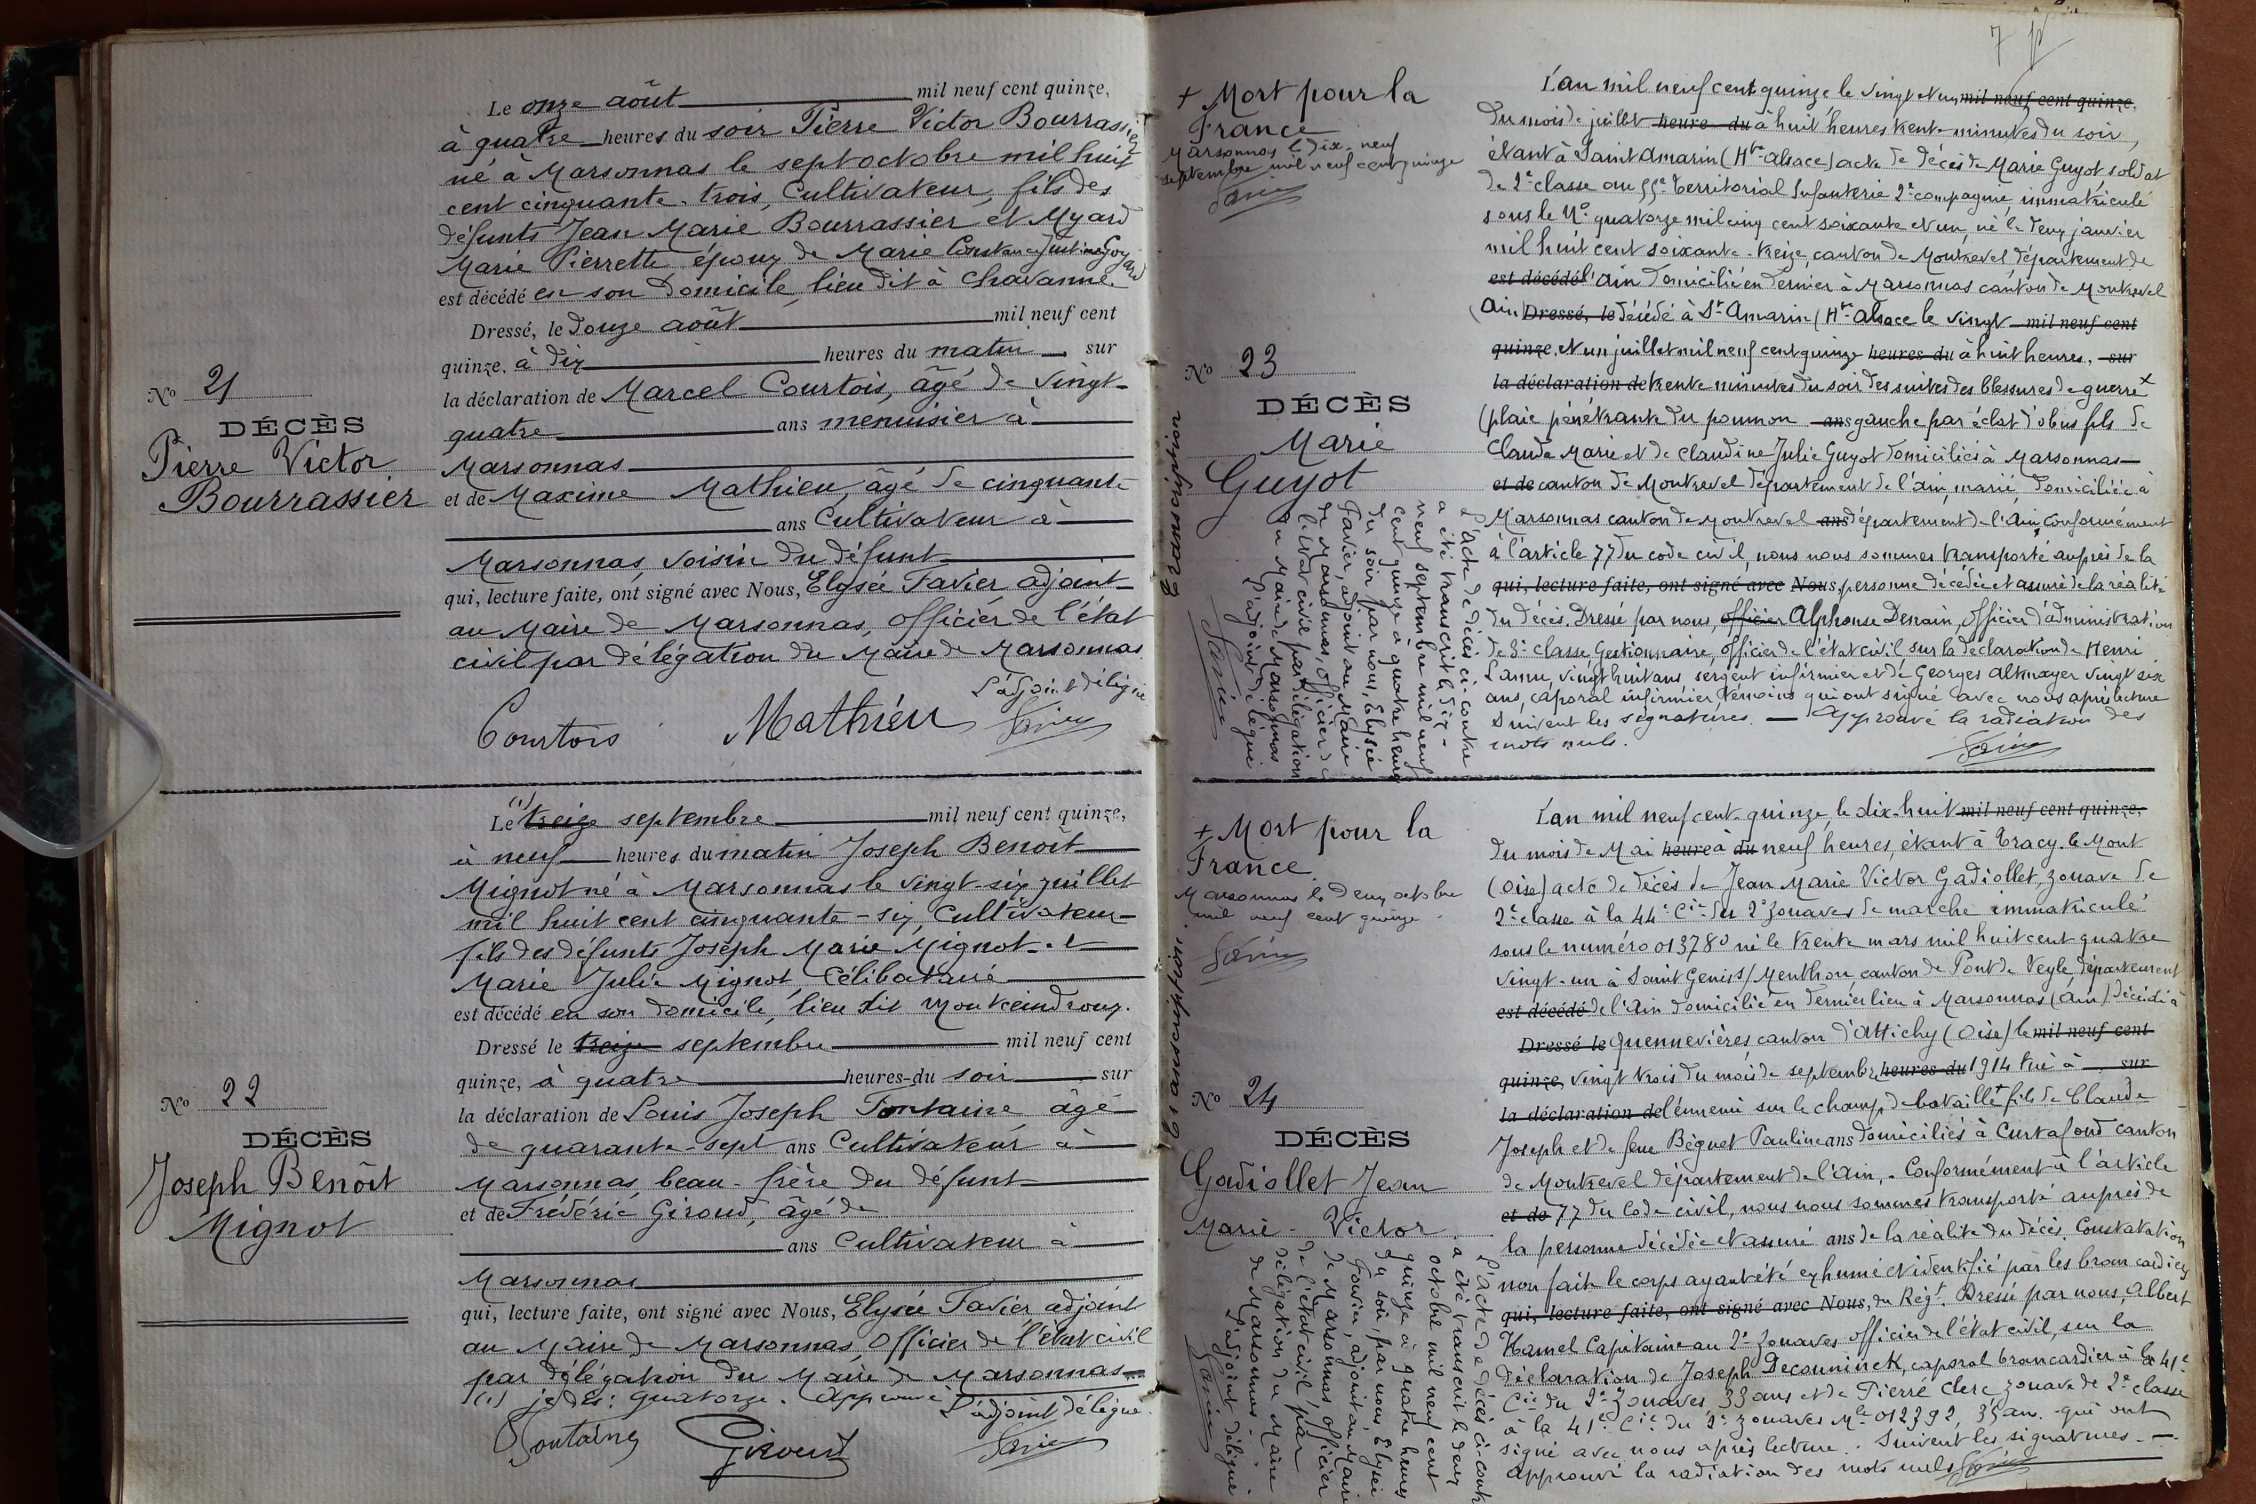 Le onze août mil neuf cent quinze,
à quatre heures du soir Pierre Victor Bourrassier
né à Marsonnas le sept octobre mil huit
cent cinquante-trois, Cultivateur, fils des
défunts Jean Marie Bourrassier et Myard
Marie Pierrette époux de Marie Constance Justine Goyard
est décédé en son domicile, lieu dit à Chavanne.
Dressé, le douze août mil neuf cent
quinze, à dix heures du matin, sur
la déclaration de Marcel Courtois, âgé de vingt-
quatre ans menuisier à
Marsonnas
et de Maxime Mathieu, âgé de cinquante
ans Cultivateur à
Marsonnas, voisin du défunt
qui, lecture faite, ont signé avec Nous, Elysée Favier adjoint
au Maire de Marsonnas, Officier de l'état
civil par délégation du Maire de Marsonnas
L'adjoint délégué
Courtois Mathieu Favier
No 21
DÉCÈS
Pierre Victor
Bourrassier
(1)
Le treize septembre mil neuf cent quinze,
à neuf heures du matin Joseph Benoît
Mignot né à Marsonnas le vingt-six juillet
mil huit cent cinquante-six, Cultivateur
fils des défunts Joseph Marie Mignot et
Marie Julie Mignot, Célibataire
est décédé en son domicile, lieu dit Montceindroux.
Dressé le treize septembre mil neuf cent
quinze, à quatre heures du soir sur
la déclaration de Louis Joseph Fontaine âgé
de quarante-sept ans Cultivateur à
Marsonnas, beau-frère du défunt
et de Frédéric Giroud, âgé de
ans Cultivateur à
Marsonnas
qui, lecture faite, ont signé avec Nous, Elysée Favier, adjoint
au Maire de Marsonnas, Officier de l'état civil
par délégation du Maire de Marsonnas
(1) je dis: quatorze. Approuvé L'adjoint délégué.
Fontaine Giroud Favier
No 22
DÉCÈS
Joseph Benoît
Mignot
7
+ Mort pour la
France
Marsonnas le dix-neuf
septembre mil neuf cent quinze
Favier
No 23
DÉCÈS
Marie
Guyot
Transcription
L'acte de décès ci-contre
a été transcrit le dix-
neuf septembre mil neuf
cent quinze à quatre heures
du soir, par nous, Elysée
Favier, adjoint au Maire
de Marsonnas, officier de
l'état civil par délégation
du Maire de Marsonnas
L'adjoint délégué
Favier
L'an mil neuf cent quinze le vingt et un mil neuf cent quinze,
du mois de juillet heure du à huit heures trente minutes du soir,
étant à Saint Amarin (Hte Alsace) acte de décès de Marie Guyot soldat
de 2e classe au 55e Territorial Infanterie 2e compagnie, immatriculé
sous le No quatorze mil cinq cent soixante et un, né le deux janvier
mil huit cent soixante-treize, canton de Montrevel département de
est décédé l'Ain domicilié en dernier à Marsonnas canton de Montrevel
(Ain) Dressé, le décédé à St Amarin (Hte Alsace le vingt mil neuf cent
quinze, et un juillet mil neuf cent quinze heures du à huit heures, sur
la déclaration de trente minutes du soir des suites des blessures de guerre +
(plaie pénétrante du poumon ans gauche par éclat d'obus fils de
Claude Marie et de Claudine Julie Guyot domiciliés à Marsonnas
et de canton de Montrevel département de l'Ain, marié, domicilié à
Marsonnas canton de Montrevel ans département de l'Ain, Conformément
à l'article 77 du code civil, nous nous sommes transporté auprès de la
qui, lecture faite, ont signé avec Nous, personne décédée et assuré de la réalité
du décès. Dressé par nous, officier Alphonse Denain, Officier d'administration
de 3e classe Gestionnaire, officier de l'état civil sur la déclaration de Henri
Lamu, vingt huit ans sergent infirmier et de Georges Altmayer vingt six
ans, caporal infirmier, témoins qui ont signé avec nous après lecture
Suivent les signatures. — Approuvé la radiation des
mots nuls. Favier
+ Mort pour la
France
Marsonnas le deux octobre
mil neuf cent quinze.
Favier
No 24
DÉCÈS
Gadiollet Jean
Marie - Victor
Transcription
L'acte de décès ci-contre
a été transcrit le deux
octobre mil neuf cent
quinze à quatre heures
du soir, par nous, Elysée
Favier, adjoint au Maire
de Marsonnas officier
de l'état civil, par
délégation du Maire
de Marsonnas.
L'adjoint délégué
Favier
L'an mil neuf cent quinze, le dix-huit mil neuf cent quinze,
du mois de Mai heure à du neuf heures, étant à Tracy-le-Mont
(Oise) acte de décès de Jean Marie Victor Gadiollet, zouave de
2e classe à la 44e Cie du 2e zouaves de marche immatriculé
sous le numéro 013780 né le trente mars mil huit cent quatre
vingt-un à Saint Genis s/ Menthon canton de Pont de Veyle, département
est décédé de l'Ain domicilié en dernier lieu à Marsonnas (Ain) décédé à
Dressé le Quennevières canton d'Attichy (Oise) le mil neuf cent
quinze, vingt trois du mois de septembre heures du 1914 tué à sur
la déclaration de l'ennemi sur le champ de bataille + fils de Claude
Joseph et de feue Béguet Pauline ans domiciliés à Curtafond canton
de Montrevel département de l'Ain. Conformément à l'article
et de 77 du Code civil, nous nous sommes transporté auprès de
la personne décédée et assuré ans de la réalité du décès. Constatation
non faite le corps ayant été exhumé et identifié par les brancardiers
qui, lecture faite, ont signé avec Nous, du Régt. Dressé par nous, Albert
Hamel Capitaine au 2e zouaves officier de l'état civil, sur la
déclaration de Joseph Decouninck, caporal brancardier à la 41e
Cie du 2e zouaves, 33 ans et de Pierre Clerc zouave de 2e classe
à la 41e Cie du 2e zouaves Mle 012392, 35 ans. qui ont
signé avec nous après lecture. Suivent les signatures. —
approuvé la radiation des mots nuls Favier